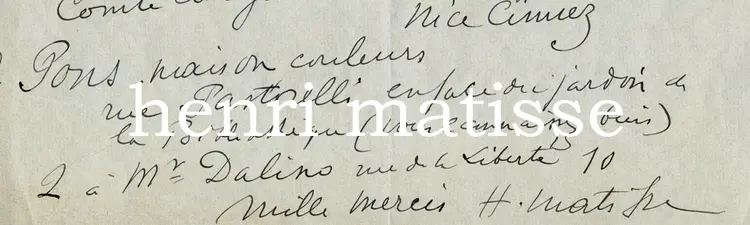 Comte
Nice Cimiez
Pons maison couleurs
rue Pastorelli en face du jardin de
la
henri matisse
2 à Mr Dalino rue de la Liberté 10
Mille mercis H. Matisse